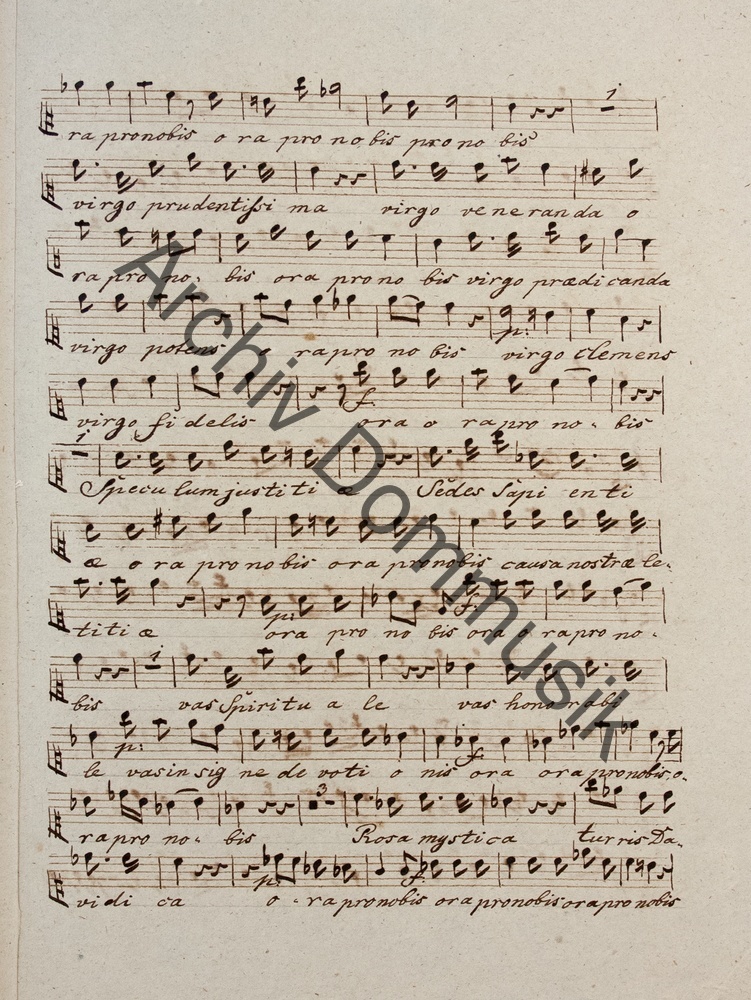 1
ra pronobis o ra pro no bis pro no bis
virgo prudentissi ma virgo veneranda o
ra pro no- bis ora prono bis virgo prædicanda
virgo potens o rapro no bis virgo Clemens
p:
virgo fi delis ora o rapro no- bis
f.
1
Specu lum justi ti æ Sedes Sapi en ti
æ o ra pro nobis ora pronobis causa nostræ le-
p: f.
titi æ ora pro no bis ora o rapro no-
1
bis vas Spiritu a le vas honorabi
p: f.
le vas in sig ne de voti o nis ora ora pronobis, o-
3
rapro no- bis Rosa mystica turris Da-
p: f.
vidi ca o- rapronobis ora pronobis ora pro nobis
Archiv Dommusik